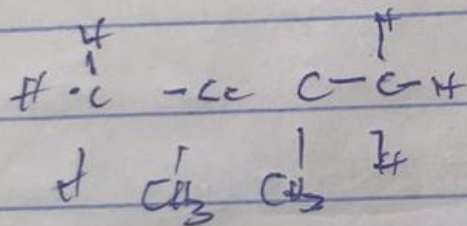 H
H
H · C - C C C - C - H
H CH3 CH3 H